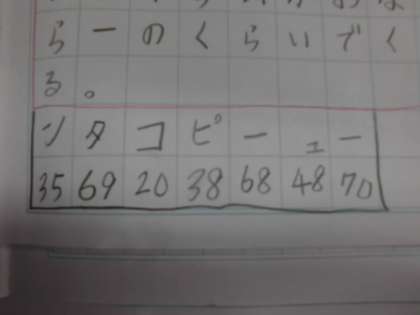 らーのくらいでく
る。
ソタコピーュー
35 69 20 38 68 48 70